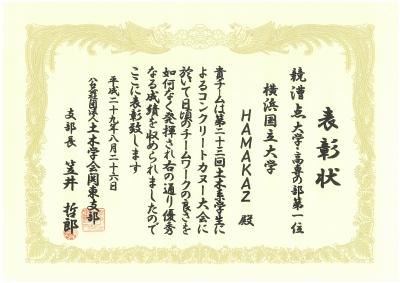 表彰状
競漕点 大学・高専の部第一位
横浜国立大学
HAMAKAZ 殿
貴チームは第二十三回土木系学生に
よるコンクリートカヌー大会に
於いて日頃のチームワークの良さを
如何なく発揮され右の通り優秀
なる成績を収められましたので
ここに表彰致します
平成二十九年八月二十六日
公益社団法人土木学会関東支部
支部長 笠井 哲郎